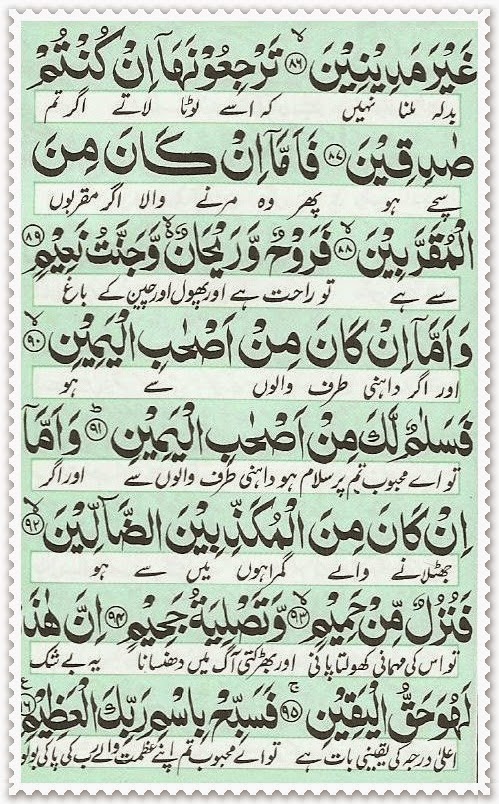 غَيْرَ مَدِيْنِيْنَ ۙ﴿۸۶﴾ تَرْجِعُوْنَهَاۤ اِنْ كُنْتُمْ
بدلہ ملنا نہیں کہ اسے لوٹا لاتے اگر تم
صٰدِقِيْنَ ﴿۸۷﴾ فَاَمَّاۤ اِنْ كَانَ مِنَ
سچے ہو پھر وہ مرنے والا اگر مقربوں
الْمُقَرَّبِيْنَ ۙ﴿۸۸﴾ فَرَوْحٌ وَّرَيْحَانٌ ۙ۬ وَّجَنَّتُ نَعِيْمٍ ﴿۸۹﴾
سے ہے تو راحت ہے اور پھول اور چین کے باغ
وَ اَمَّاۤ اِنْ كَانَ مِنْ اَصْحٰبِ الْيَمِيْنِ ۙ﴿۹۰﴾
اور اگر داہنی طرف والوں سے ہو
فَسَلٰمٌ لَّكَ مِنْ اَصْحٰبِ الْيَمِيْنِ ؕ﴿۹۱﴾ وَ اَمَّاۤ
تو اے محبوب تم پر سلام ہو داہنی طرف والوں سے اور اگر
اِنْ كَانَ مِنَ الْمُكَذِّبِيْنَ الضَّآلِّيْنَ ۙ﴿۹۲﴾
جھٹلانے والے گمراہوں میں سے ہو
فَنُزُلٌ مِّنْ حَمِيْمٍ ۙ﴿۹۳﴾ وَّ تَصْلِيَةُ جَحِيْمٍ ﴿۹۴﴾ اِنَّ هٰذَا
تو اس کی مہمانی کھولتا پانی اور بھڑکتی آگ میں دھنسانا یہ بے شک
لَهُوَ حَقُّ الْيَقِيْنِ ۚ﴿۹۵﴾ فَسَبِّحْ بِاسْمِ رَبِّكَ الْعَظِيْمِ
اعلیٰ درجہ کی یقینی بات ہے تو اے محبوب تم اپنے عظمت والے رب کی پاکی بولو